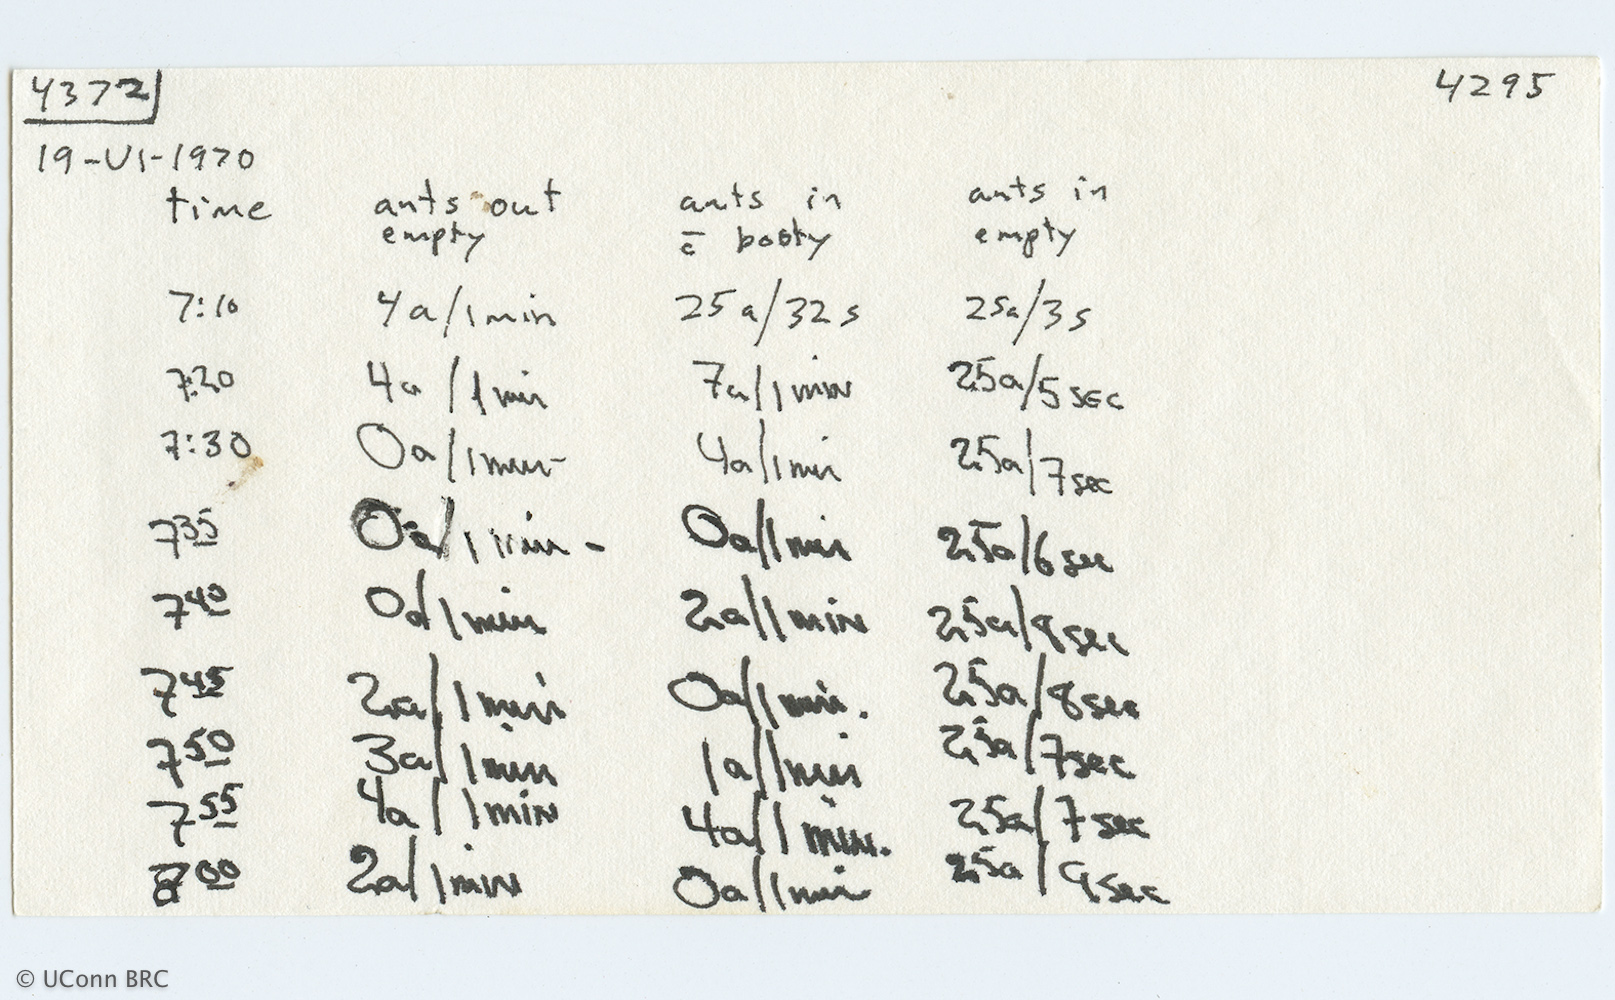 4372 4295
19-VI-1970
time ants out ants in ants in
empty c̄ booty empty
7:10 4a/1min 25a/32s 25a/3s
7:20 4a/1min 7a/1min 25a/5sec
7:30 0a/1min- 4a/1min 25a/7sec
7 35 0a/1min - 0a/1min 25a/6sec
7 40 0a/1min 2a/1min 25a/ sec
7 45 2a/1min 0a/1min. 25a/8sec
7 50 3a/1min 1a/1min 25a/7sec
7 55 4a/1min 4a/1min. 25a/7sec
8 00 2a/1min 0a/1min 25a/9sec
© UConn BRC